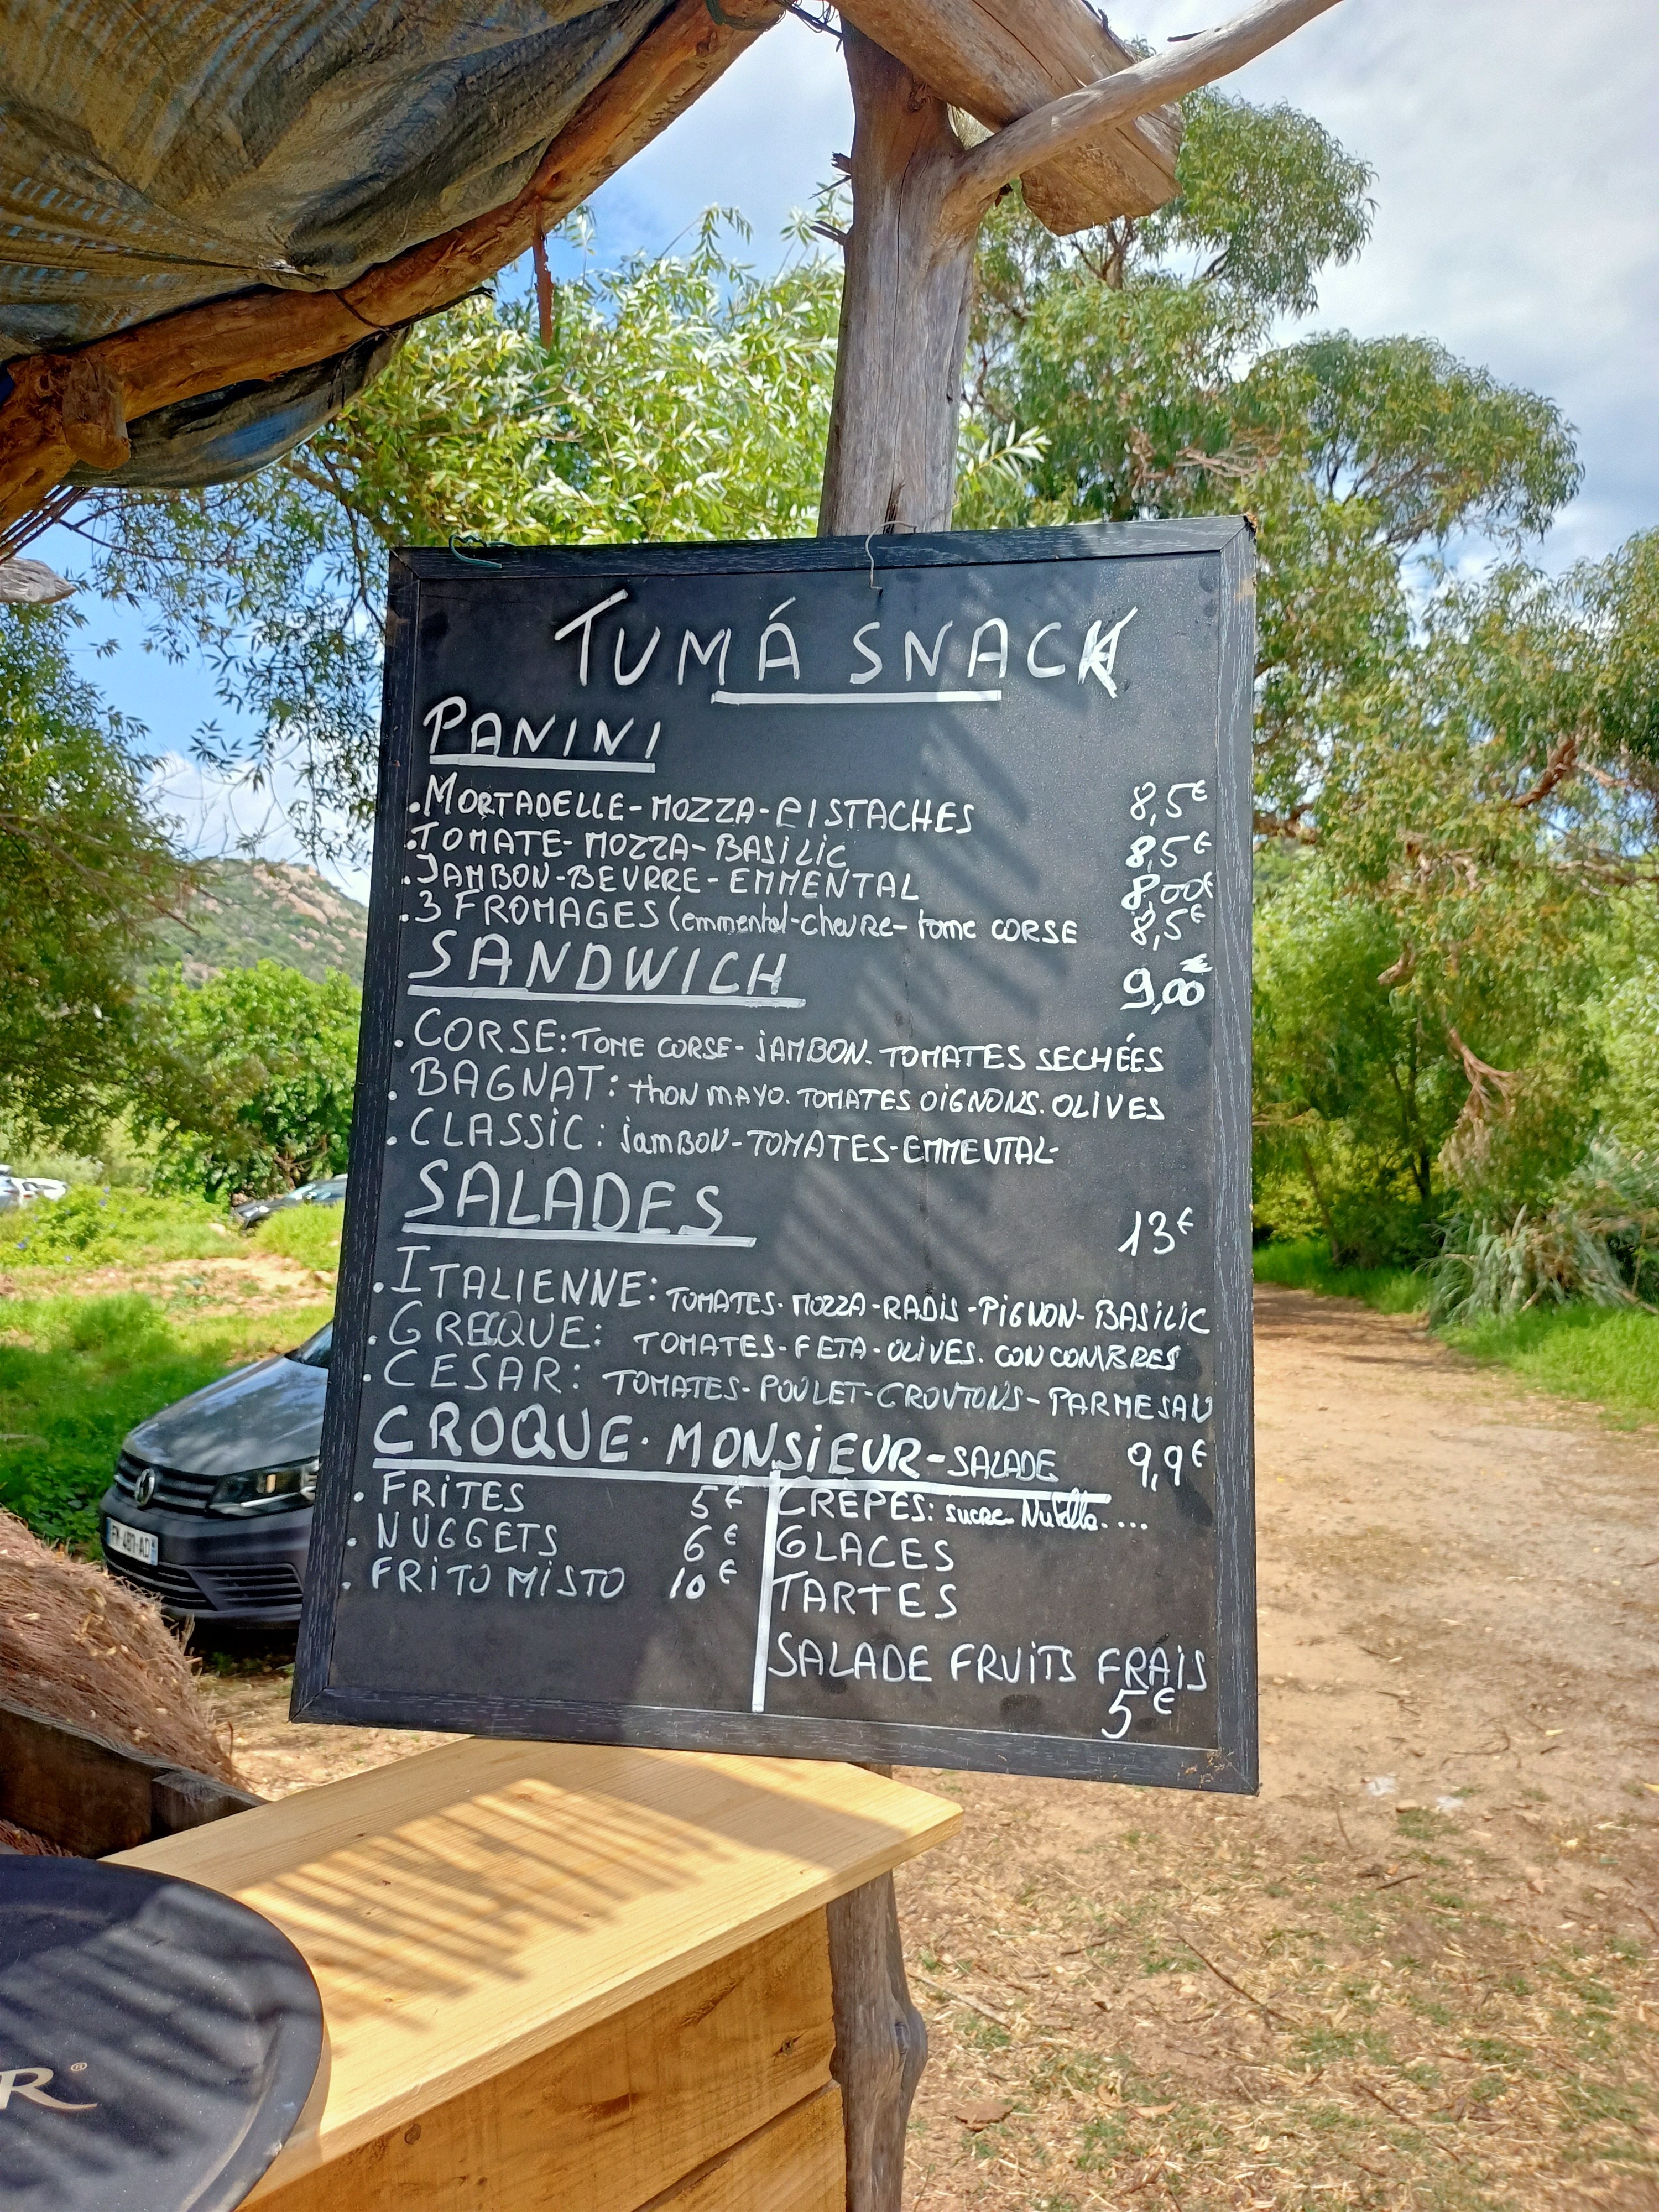 TUMÁ SNACK
PANINI
. MORTADELLE - MOZZA - PISTACHES 8,5€
. TOMATE - MOZZA - BASILIC 8,5€
. JAMBON - BEURRE - EMMENTAL 8,00€
. 3 FROMAGES (emmental - chevre - tome CORSE 8,5€
SANDWICH 9,00€
. CORSE: TOME CORSE - JAMBON. TOMATES SECHÉES
. BAGNAT: thON MAYO. TOMATES OIGNONS. OLIVES
. CLASSIC: jamBON - TOMATES - EMMENTAL -
SALADES 13€
. ITALIENNE: TOMATES - MOZZA - RADIS - PIGNON - BASILIC
. GRECQUE: TOMATES - FETA - OLIVES. CONCOMBRES
. CESAR: TOMATES - POULET - CROUTONS - PARMESAN
CROQUE. MONSIEUR - SALADE 9,9€
. FRITES 5€
. NUGGETS 6€
. FRITO MISTO 10€
CRÊPES: sucre Nutella....
GLACES
TARTES
SALADE FRUITS FRAIS
5€
R®